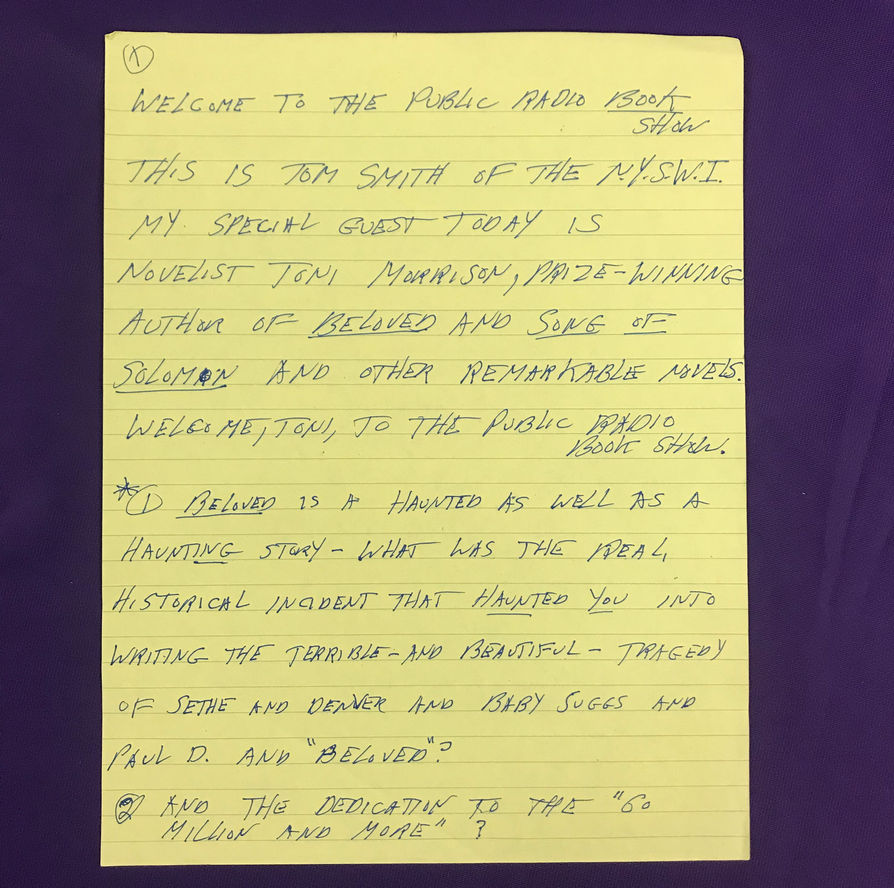 1
WELCOME TO THE PUBLIC RADIO BOOK
SHOW
THIS IS TOM SMITH OF THE N.Y.S.W.I.
MY SPECIAL GUEST TODAY IS
NOVELIST TONI MORRISON, PRIZE-WINNING
AUTHOR OF BELOVED AND SONG OF
SOLOMON AND OTHER REMARKABLE NOVELS.
WELCOME, TONI, TO THE PUBLIC RADIO
BOOK SHOW.
*1 BELOVED IS A HAUNTED AS WELL AS A
HAUNTING STORY – WHAT WAS THE REAL,
HISTORICAL INCIDENT THAT HAUNTED YOU INTO
WRITING THE TERRIBLE – AND BEAUTIFUL – TRAGEDY
OF SETHE AND DENVER AND BABY SUGGS AND
PAUL D. AND "BELOVED"?
2 AND THE DEDICATION TO THE "60
MILLION AND MORE"?